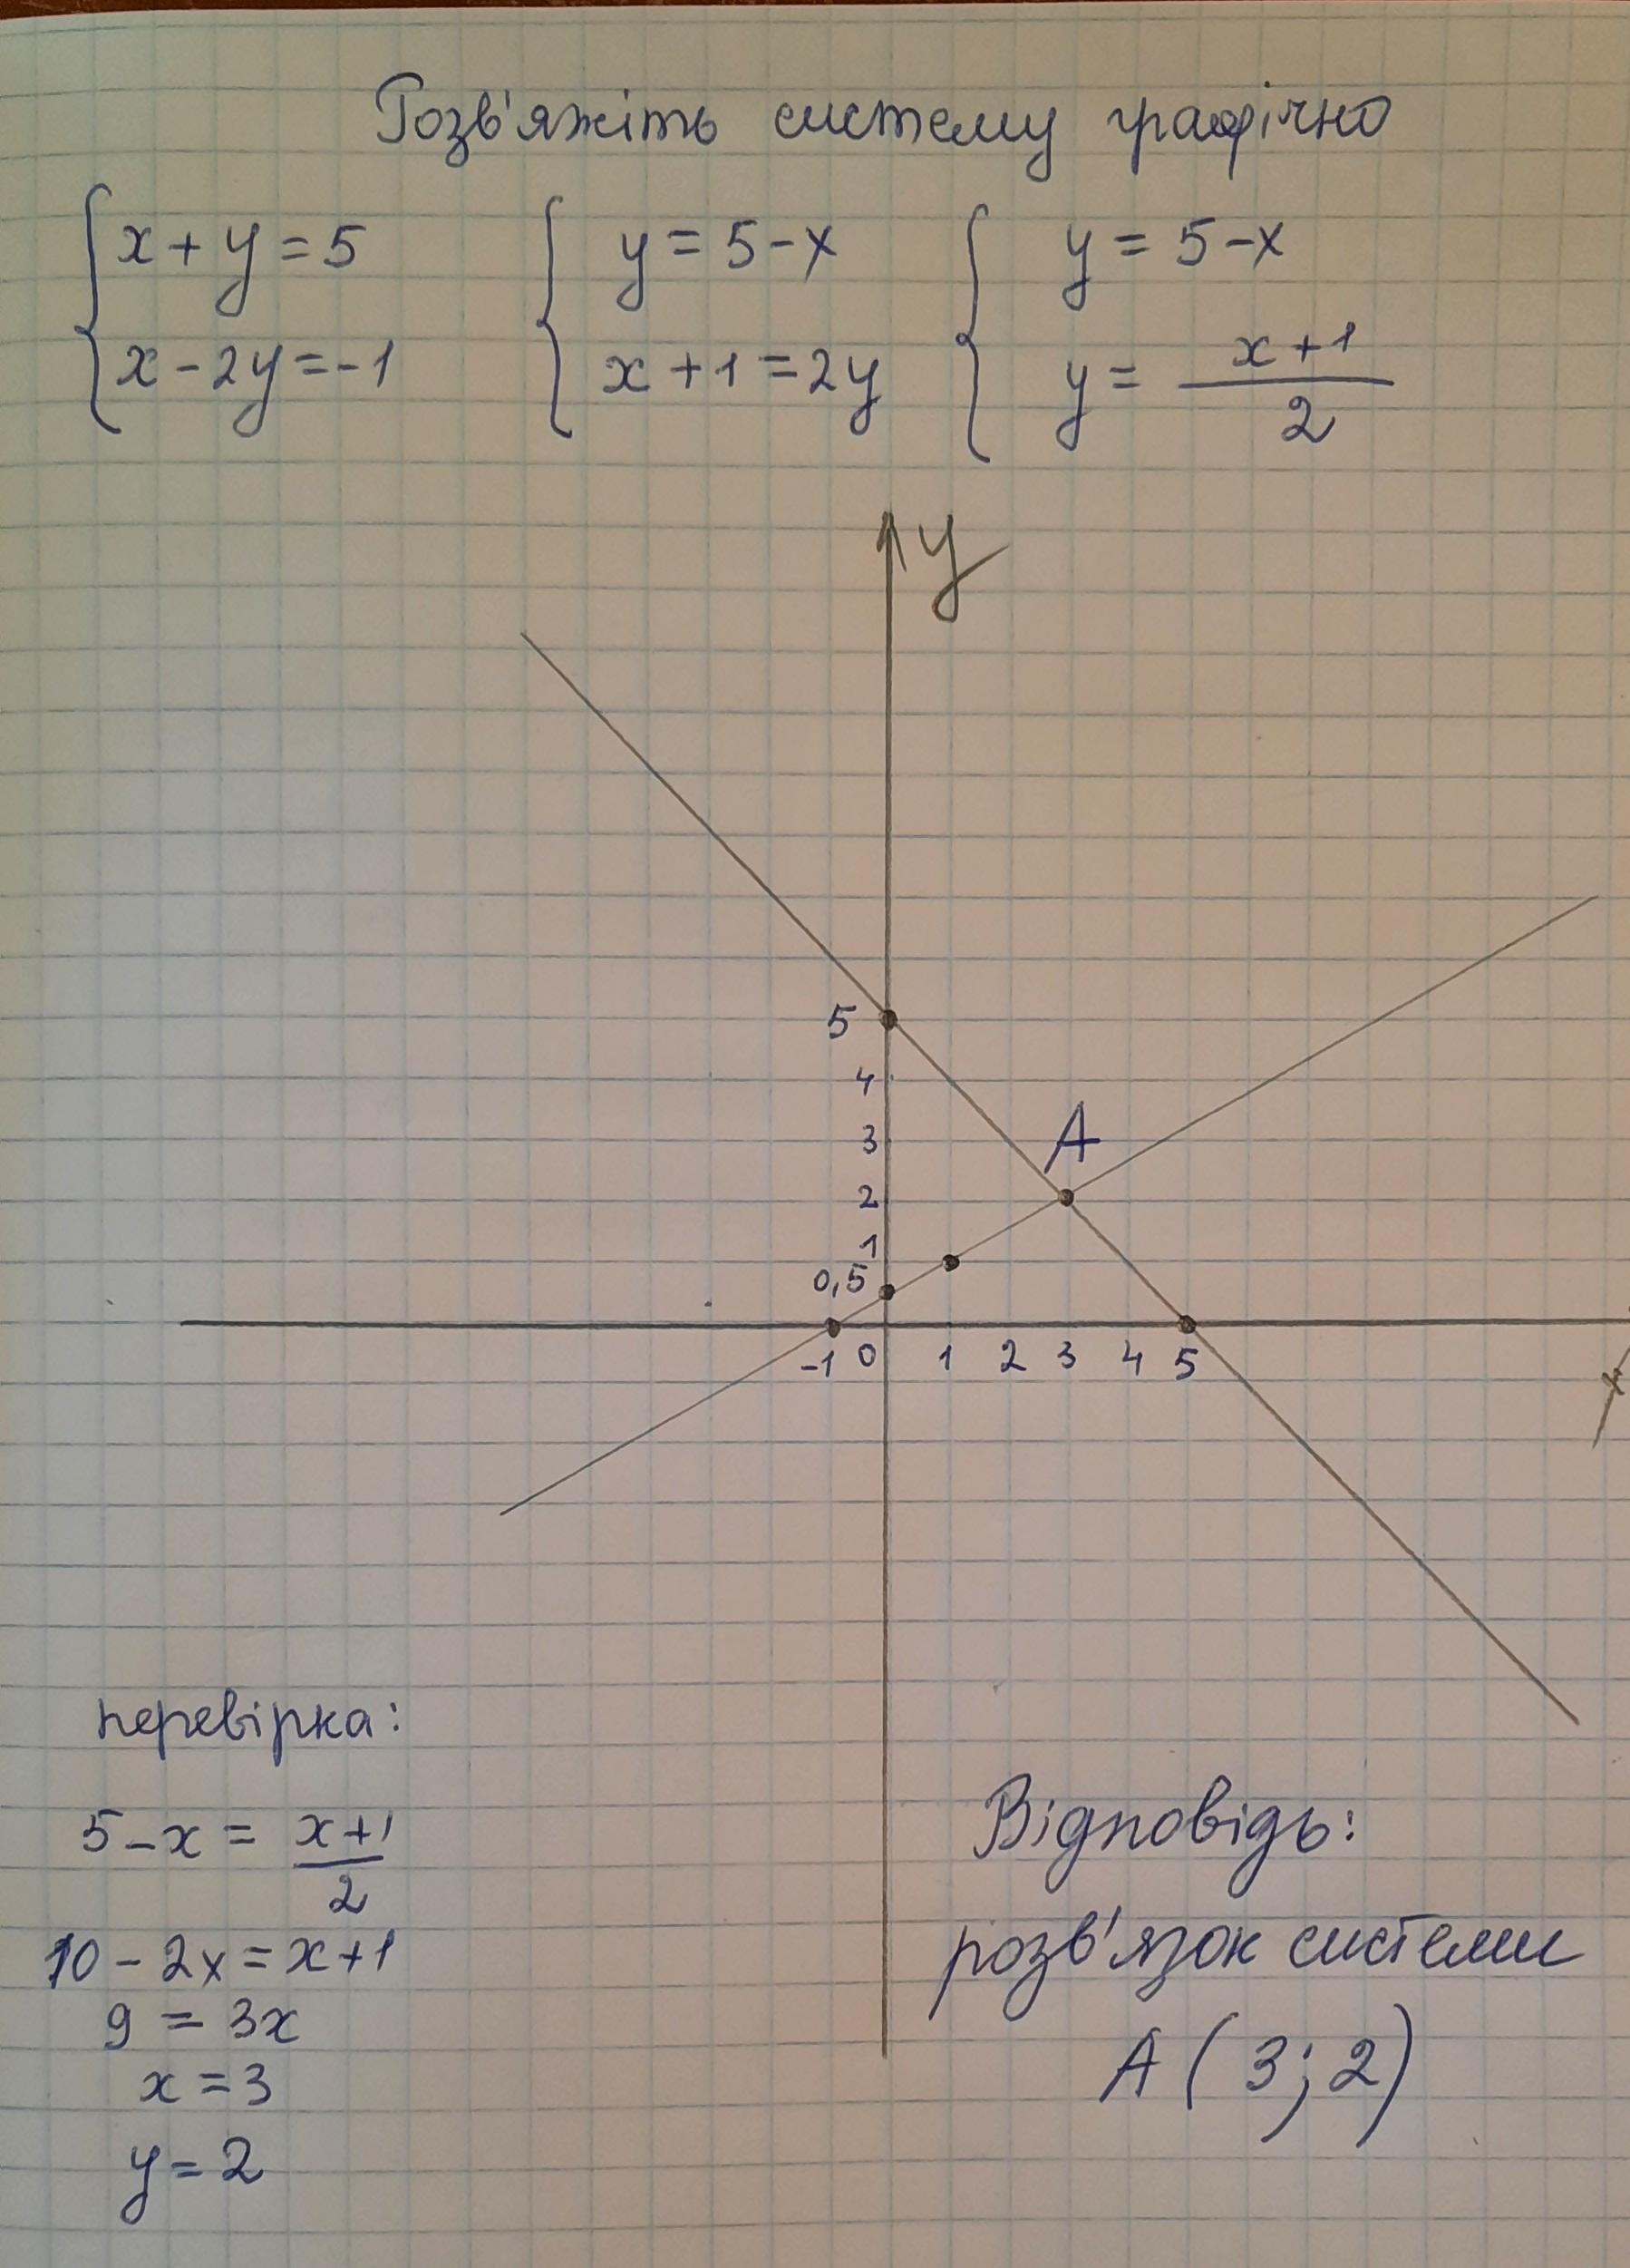 Розв'яжіть систему графічно
{ x + y = 5 { y = 5 - x { y = 5 - x
x - 2y = -1 x + 1 = 2y y = (x + 1)/2
y
5
4
A
3
2
1
0,5
-1 0 1 2 3 4 5
x
перевірка:
5 - x = (x + 1)/2
10 - 2x = x + 1
9 = 3x
x = 3
y = 2
Відповідь:
розв'язок системи
A ( 3 ; 2 )